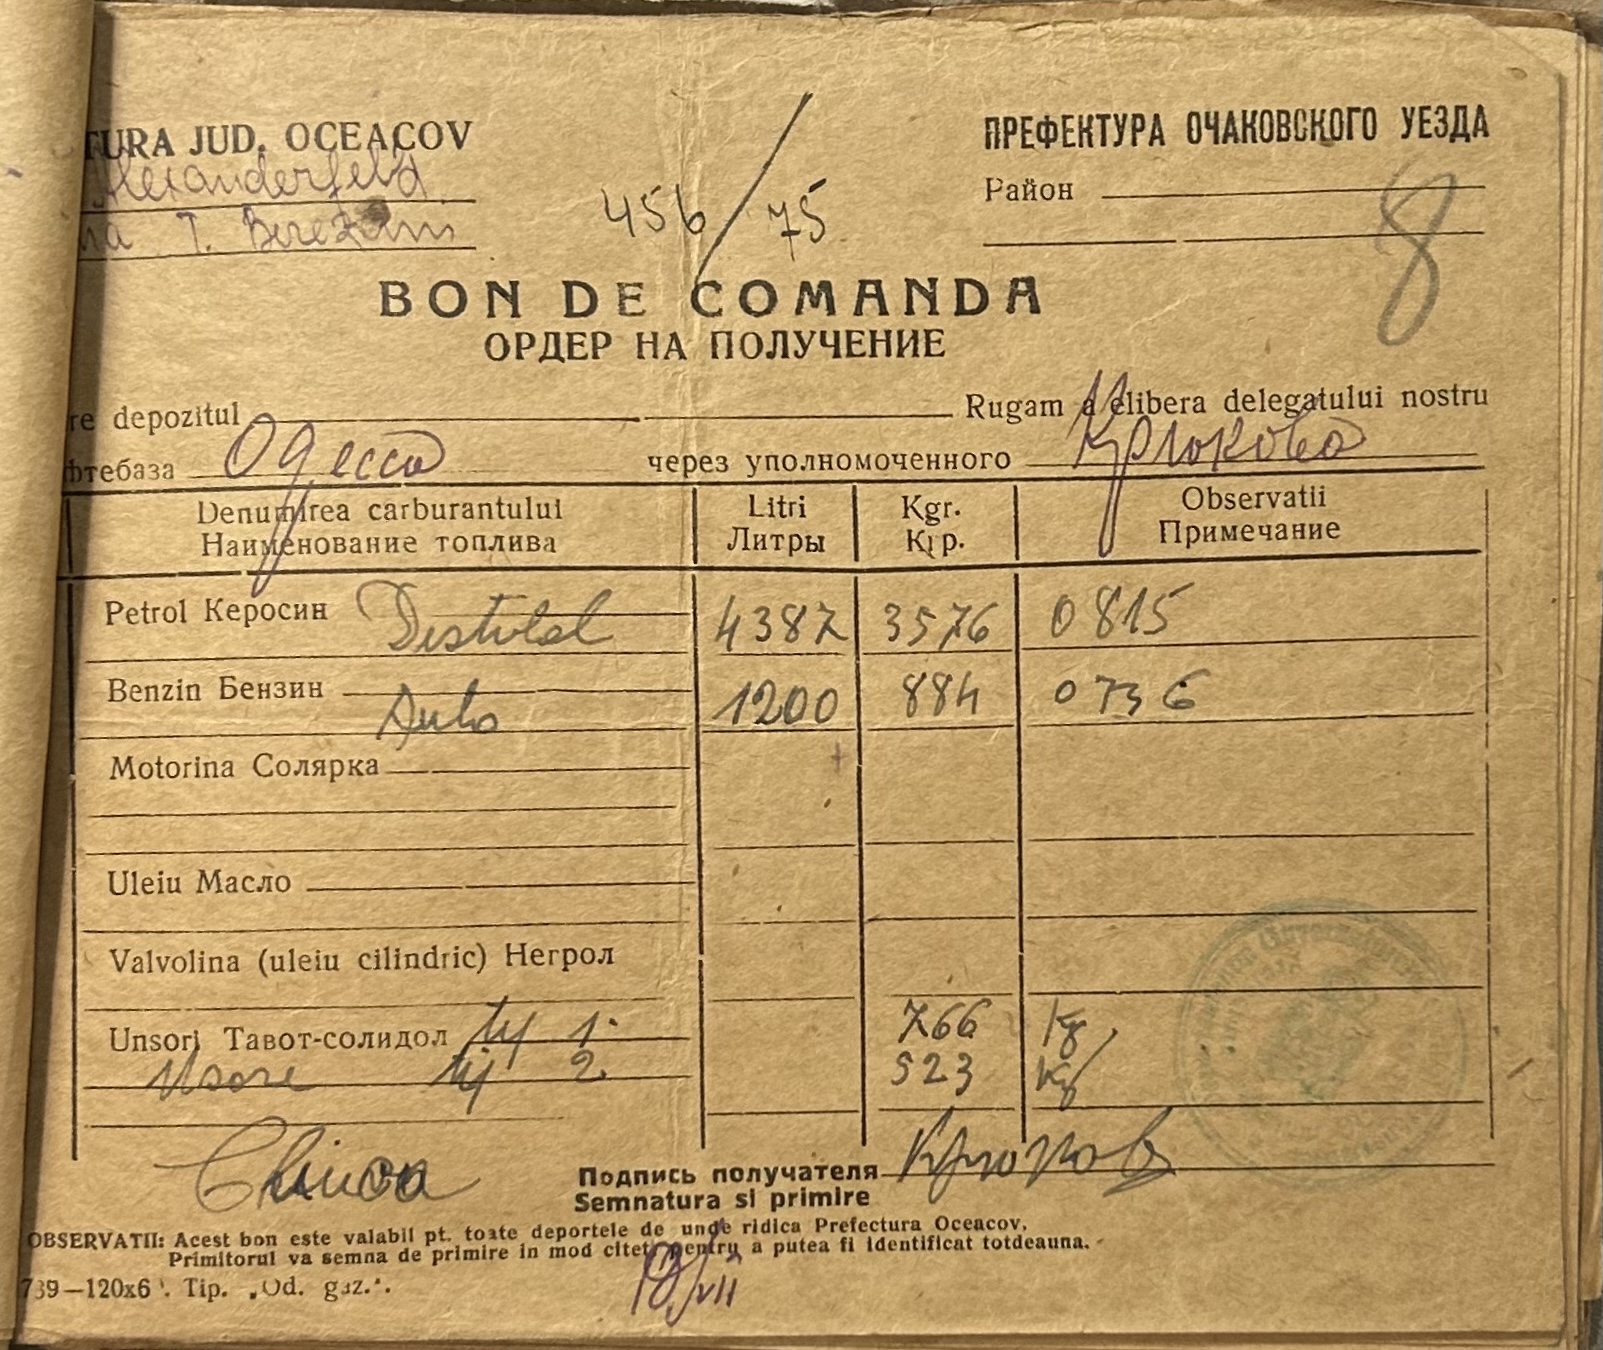 TURA JUD. OCEACOV
ПРЕФЕКТУРА ОЧАКОВСКОГО УЕЗДА
Alexanderfeld
456/75
Район
8
T. Berezani
BON DE COMANDA
ОРДЕР НА ПОЛУЧЕНИЕ
re depozitul Rugam a elibera delegatului nostru
фтебаза Одесса через уполномоченного Крюкова
Denumirea carburantului Litri Kgr. Observatii
Наименование топлива Литры Кгр. Примечание
Petrol Керосин Distilat 4387 3576 0815
Benzin Бензин Auto 1200 884 0736
Motorina Солярка
Uleiu Масло
Valvolina (uleiu cilindric) Негрол
Unsori Тавот-солидол 1. 766 kg
2. 523 kg
Подпись получателя Крюков
Semnatura si primire
OBSERVATII: Acest bon este valabil pt. toate deportele de unde ridica Prefectura Oceacov.
Primitorul va semna de primire in mod citet pentru a putea fi identificat totdeauna.
18/VII
739—120x6 . Tip. „Od. gaz.".